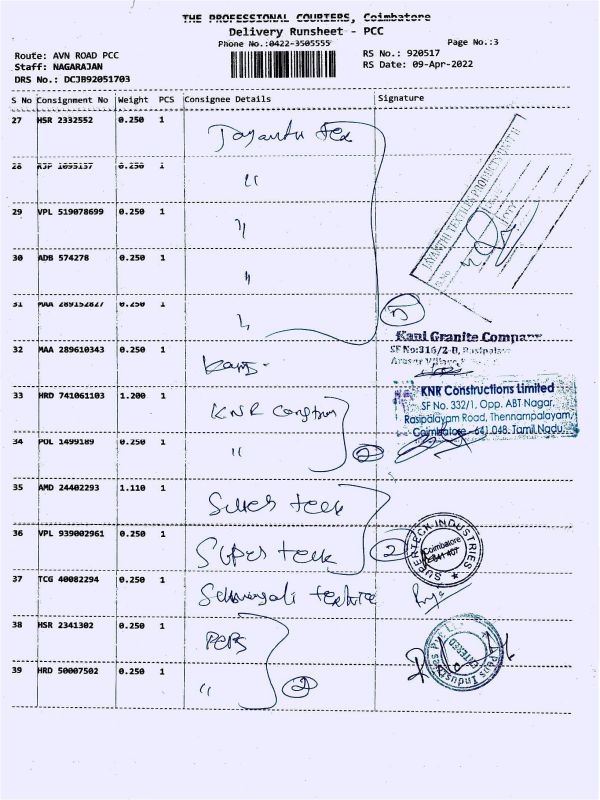 THE PROFESSIONAL COURIERS, Coimbatore
Delivery Runsheet - PCC
Phone No.:0422-3505555
Page No.:3
Route: AVN ROAD PCC
RS No.: 920517
Staff: NAGARAJAN
RS Date: 09-Apr-2022
DRS No.: DCJB92051703
S No Consignment No Weight PCS Consignee Details Signature
27 HSR 2332552 0.250 1
28 1095137 0.250 1 "
29 VPL 519078699 0.250 1 "
30 ADB 574278 0.250 1 "
31 MAA 289152827 0.250 1 "
JAYANTHI TEXTILES PRODUCTS
5
32 MAA 289610343 0.250 1
Kani Granite Company
SF No:316/2-B, Rasipalayam
33 HRD 741061103 1.200 1 KNR
KNR Constructions Limited
SF No. 332/1, Opp. ABT Nagar,
Rasipalayam Road, Thennampalayam,
Coimbatore - 641 048. Tamil Nadu.
34 POL 1499189 0.250 1 "
2
35 AMD 24402293 1.110 1 Super teck
36 VPL 939002961 0.250 1 Super teck
2
SUPERTECK INDUSTRIES
Coimbatore
641 407
37 TCG 40082294 0.250 1
38 HSR 2341302 0.250 1 PEPS
39 HRD 50007502 0.250 1 "
2
Peps Industries Pvt Ltd